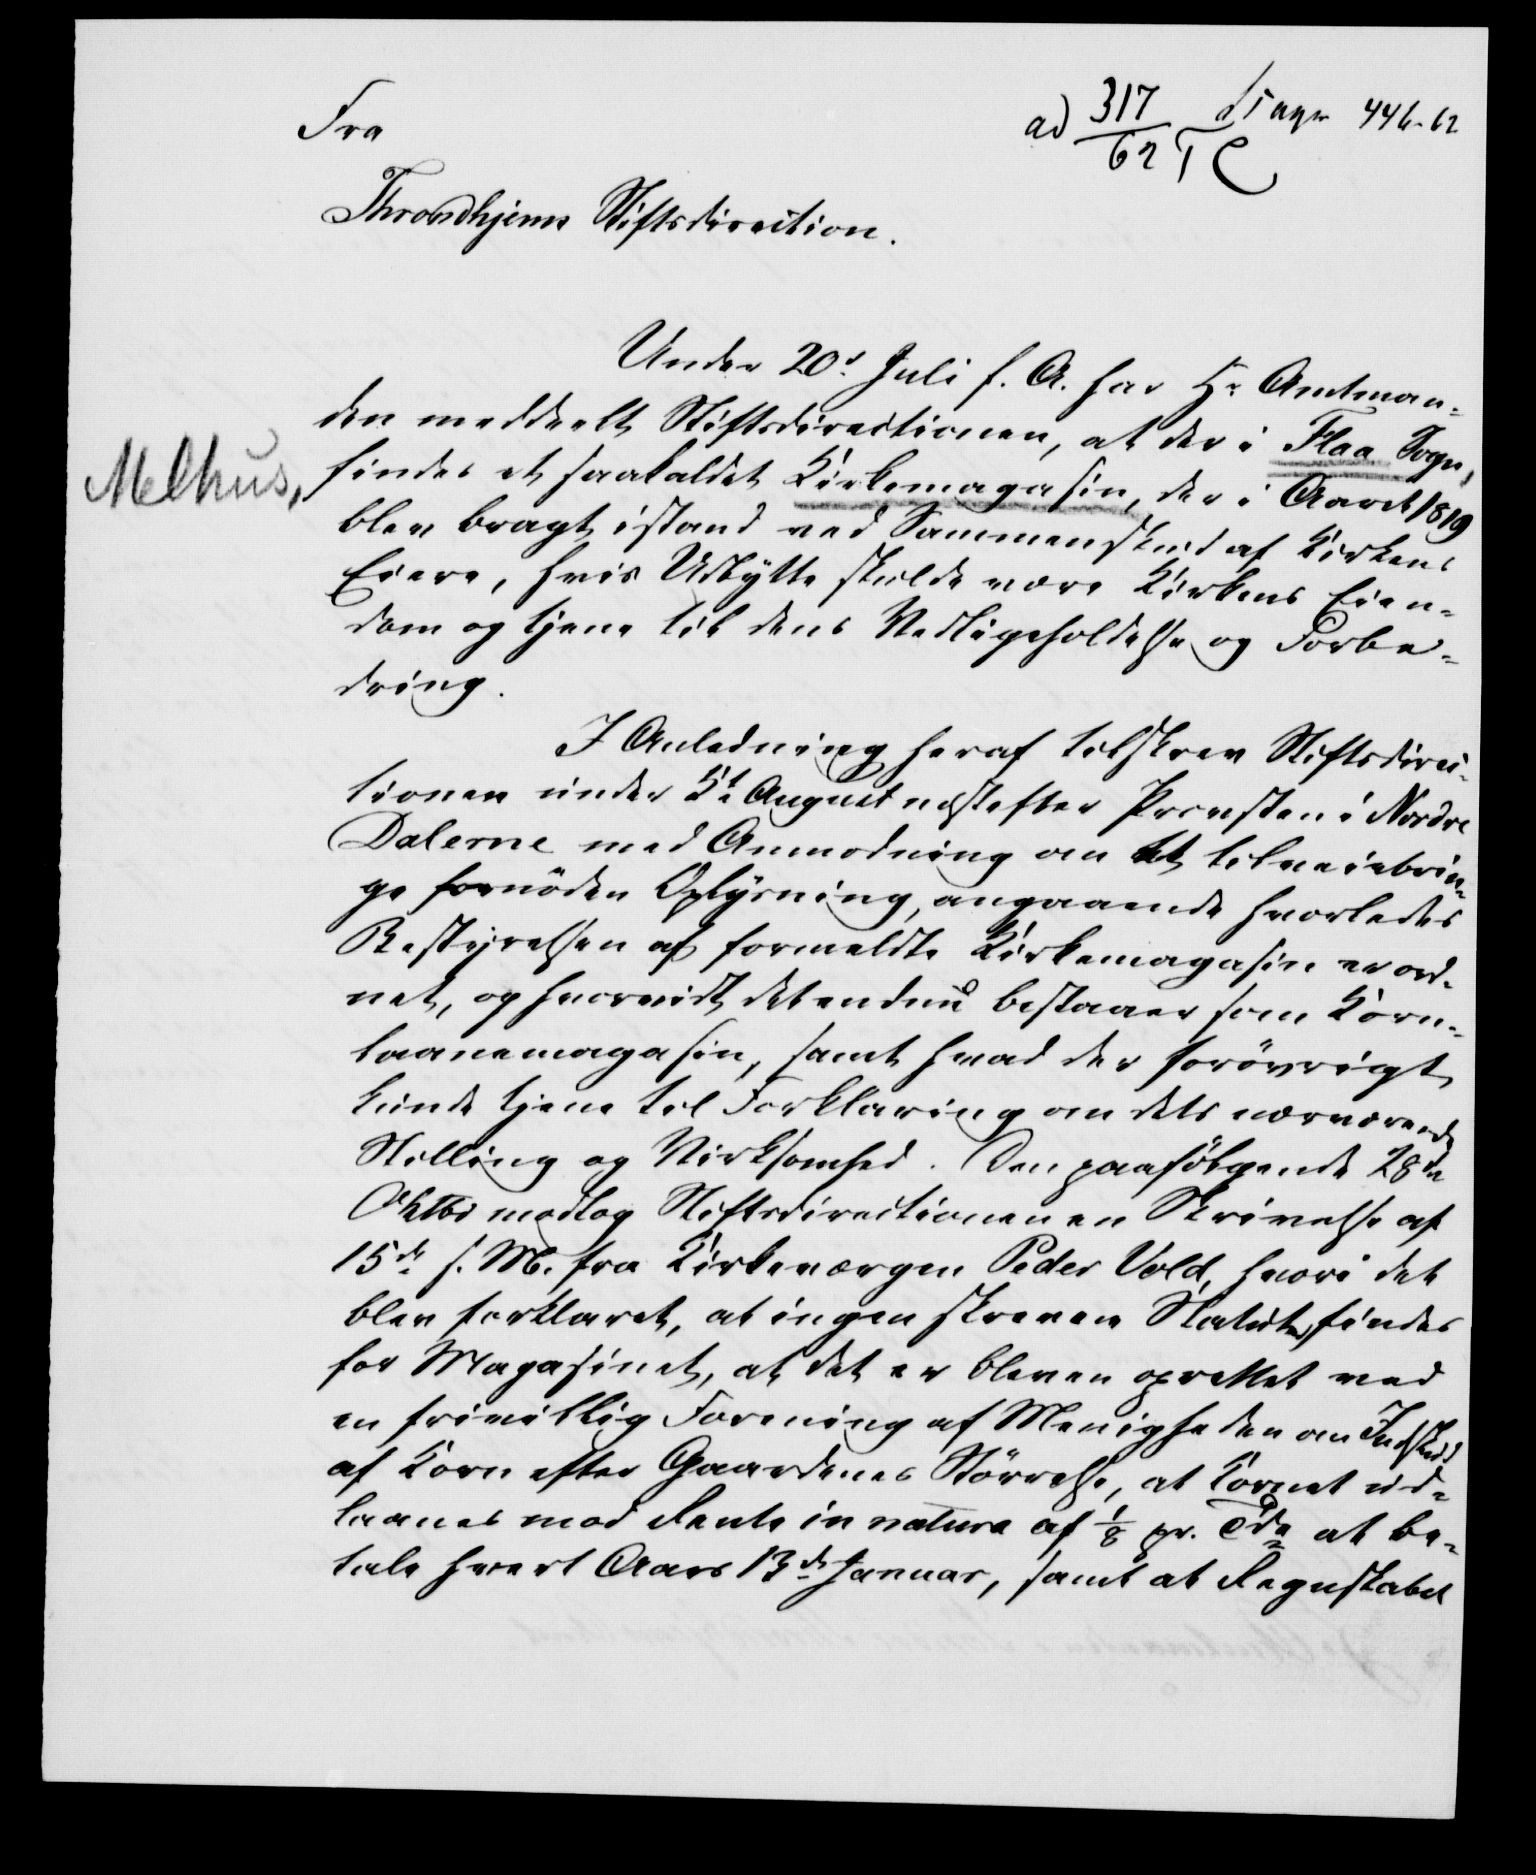 Fra
ad 317/62 446-62
Throndhjems Stiftsdirection.
Under 20de Juli f. A. har Hr Amtman-
den meddeelt Stiftsdirectionen, at der i Flaa Sogn,
Melhus,
findes et saakaldet Kirkemagasin, der i Aaret 1819
blev bragt istand ved Sammenskud af Kirkens
Eiere, hvis Udbytte skulde være Kirkens Eien-
dom og tjene til dens Vedligeholdelse og Forbe-
dring.
I Anledning heraf tilskrev Stiftsdirec-
tionen under August næstefter Provsten i Nordre
Dalerne med Anmodning om at tilveiebrin-
ge fornöden Oplysning, angaaende hvorledes
Bestyrelsen af formeldte Kirkemagasin er ord-
net, og hvorvidt det endnu bestaaer som Korn-
laanemagasin, samt hvad der forövrigt
kunde tjene til Forklaring om dets nærværende
Stilling og Virksomhed. Den paafölgende 28de
Oktbr modtog Stiftsdirectionen en Skrivelse af
15de s. M. fra Kirkeværgen Peder Vold, hvori det
blev forklaret, at ingen skreven Statut findes
for Magasinet, at det er bleven oprettet ved
en frivillig Forening af Menigheden om Indskud
af Korn efter Gaardenes Störrelse, at Kornet ud-
laanes mod Rente in natura af 1/8 pr. Tde at be-
tale hvert Aars 13de Januar, samt at Regnskabet